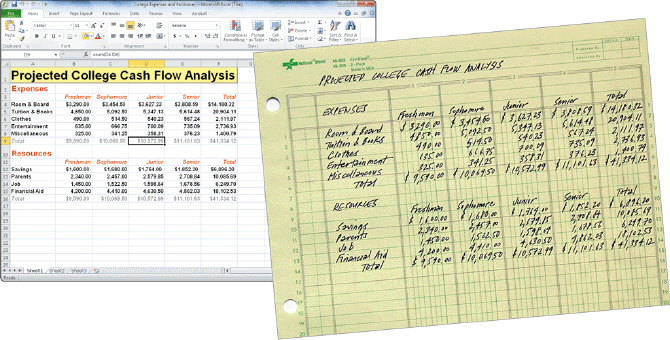 College Expenses and Resources - Microsoft Excel
File Home Insert Page Layout Formulas Data Review View
Paste
Conditional Formatting Format as Table Cell Styles
Insert
Delete
Format
Sort & Filter Find & Select
Clipboard Font Alignment Number Styles Cells Editing
D9
A B C D E F
Projected College Cash Flow Analysis
Expenses
Freshman Sophomore Junior Senior Total
Room & Board $3,290.00 $3,454.50 $3,627.23 $3,808.59 $14,180.32
Tuition & Books 4,850.00 5,092.50 5,347.13 5,614.48 20,904.11
Clothes 490.00 514.50 540.23 567.24 2,111.97
Entertainment 635.00 666.75 700.09 735.09 2,736.93
Miscellaneous 325.00 341.25 358.31 376.23 1,400.79
Total $9,590.00 $10,069.50 $10,572.99 $11,101.63 $41,334.12
Resources
Freshman Sophomore Junior Senior Total
Savings $1,600.00 $1,680.00 $1,764.00 $1,852.20 $6,896.20
Parents 2,340.00 2,457.00 2,579.85 2,708.84 10,085.69
Job 1,450.00 1,522.50 1,598.64 1,678.56 6,249.70
Financial Aid 4,200.00 4,410.00 4,630.50 4,862.03 18,102.53
Total $9,590.00 $10,069.50 $10,572.99 $11,101.63 $41,334.12
Sheet1 Sheet2 Sheet3
Ready
National Brand
Made in USA
PROJECTED COLLEGE CASH FLOW ANALYSIS
EXPENSES Freshmen Sophomore Junior Senior Total
Room & Board $3,454.50 $3,627.23 $3,808.59 $14,180.32
Tuition & Books 5,092.50 5,347.13 5,614.48 20,904.11
Clothes 490.00 514.50 540.23
Entertainment 635.00 666.75 700.09 735.09
Miscellaneous 325.00 341.25 376.23 1,400.79
Total $9,590.00 $10,069.50 $10,572.99 $11,101.63 $41,334.12
RESOURCES Freshman Sophomore Junior Senior Total
Savings $1,600.00 $1,680.00 $1,764.00 $1,852.20
Parents 2,340.00 2,457.00
Job 1,450.00 1,522.50
Financial Aid 4,200.00 4,410.00 4,630.50 4,862.03 18,102.53
Total $9,590.00 $10,069.50 $10,572.99 $11,101.63 $41,334.12